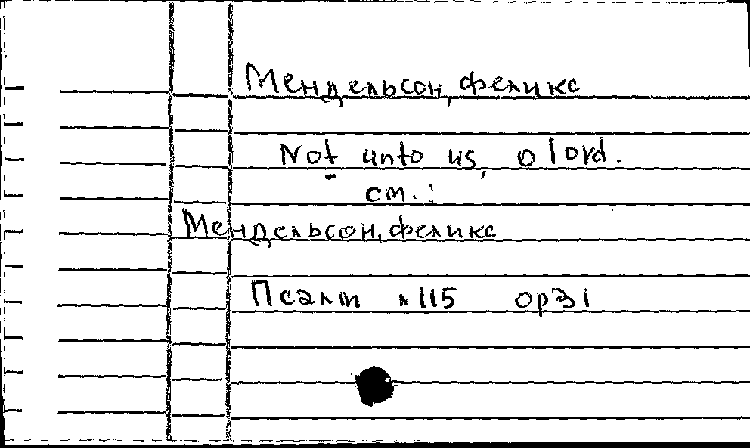 Мендельсон, феликс
Not unto us, o lord.
см.:
Мендельсон, феликс
Псалм №115 op31